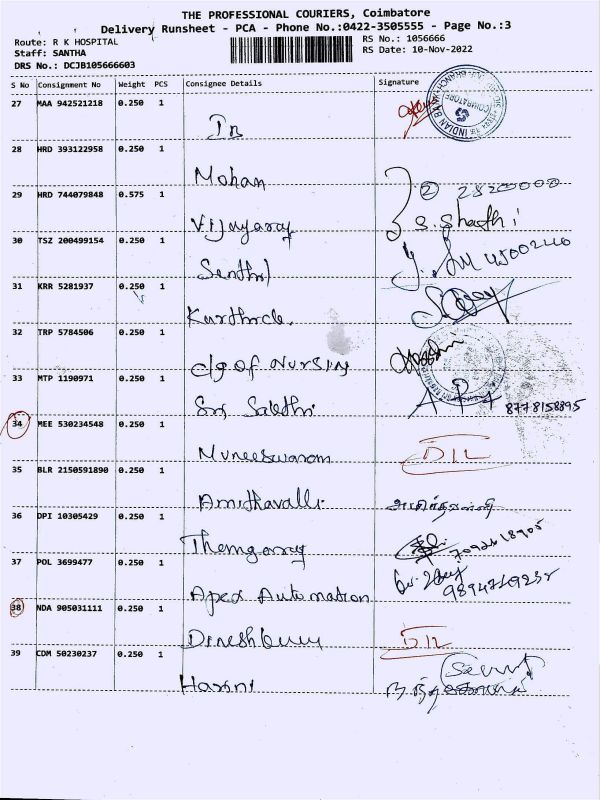 THE PROFESSIONAL COURIERS, Coimbatore
Delivery Runsheet - PCA - Phone No.:0422-3505555 - Page No.:3
Route: R K HOSPITAL
Staff: SANTHA
DRS No.: DCJB105666603
RS No.: 1056666
RS Date: 10-Nov-2022
S No Consignment No Weight PCS Consignee Details Signature
27 MAA 942521218 0.250 1
INDIAN BANK COIMBATORE
28 HRD 393122958 0.250 1
Mohan
29 HRD 744079848 0.575 1
② 2820000
Vijayaraj
30 TSZ 200499154 0.250 1
Senthil
31 KRR 5281937 0.250 1
32 TRP 5784506 0.250 1
clg of Nursing
33 MTP 1190971 0.250 1
Sri Sakthi
8778158895
34 MEE 530234548 0.250 1
Muneeswaram
D/L
35 BLR 2150591890 0.250 1
Amithavalli
36 DPI 10305429 0.250 1
37 POL 3699477 0.250 1
Apex Automation
38 NDA 905031111 0.250 1
D/L
39 CDM 50230237 0.250 1
Harini